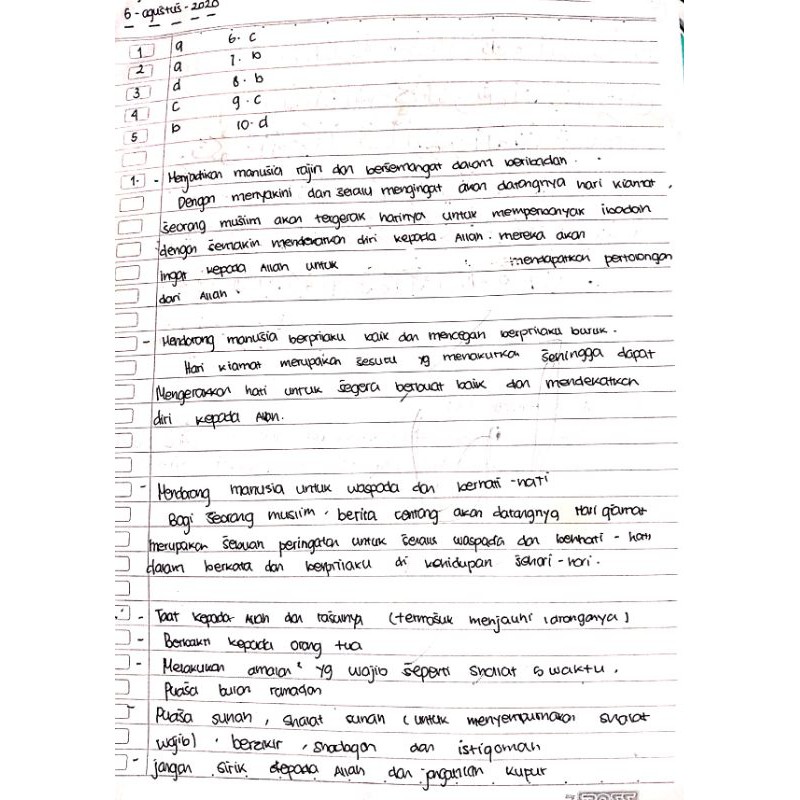 6 - agustus - 2020
1 a 6. c
2 a 7. b
3 d 8. b
4 c 9. c
5 b 10. d
1. - Menjadikan manusia rajin dan bersemangat dalam beribadah.
Dengan menyakini dan selalu mengingat akan datangnya hari kiamat,
seorang muslim akan tergerak harinya untuk memperbanyak ibadah
dengan semakin mendekatkan diri kepada Allah. mereka akan
ingat kepada Allah untuk mendapatkan pertolongan
dari Allah.
- Mendorong manusia berprilaku baik dan mencegah berprilaku buruk.
Hari kiamat merupakan sesuatu yg menakutkan sehingga dapat
Mengerakkan hati untuk segera berbuat baik dan mendekatkan
diri kepada Allah.
- Mendorong manusia untuk waspada dan berhati - hati
Bagi seorang muslim, berita tentang akan datangnya Hari qiamat
merupakan sebuah peringatan untuk selalu waspada dan berhati - hati
dalam berkata dan berprilaku di kehidupan sehari - hari.
- Taat kepada Allah dan rasulnya (termasuk menjauhi laranganya)
- Berbakti kepada orang tua
- Melakukan amalan² yg wajib seperti shalat 5 waktu,
Puasa bulan ramadan
- Puasa sunah, shalat sunah (untuk menyempurnakan shalat
wajib), berzikir, shadaqah dan istiqomah
- jangan sirik kepada Allah dan janganlah kupur